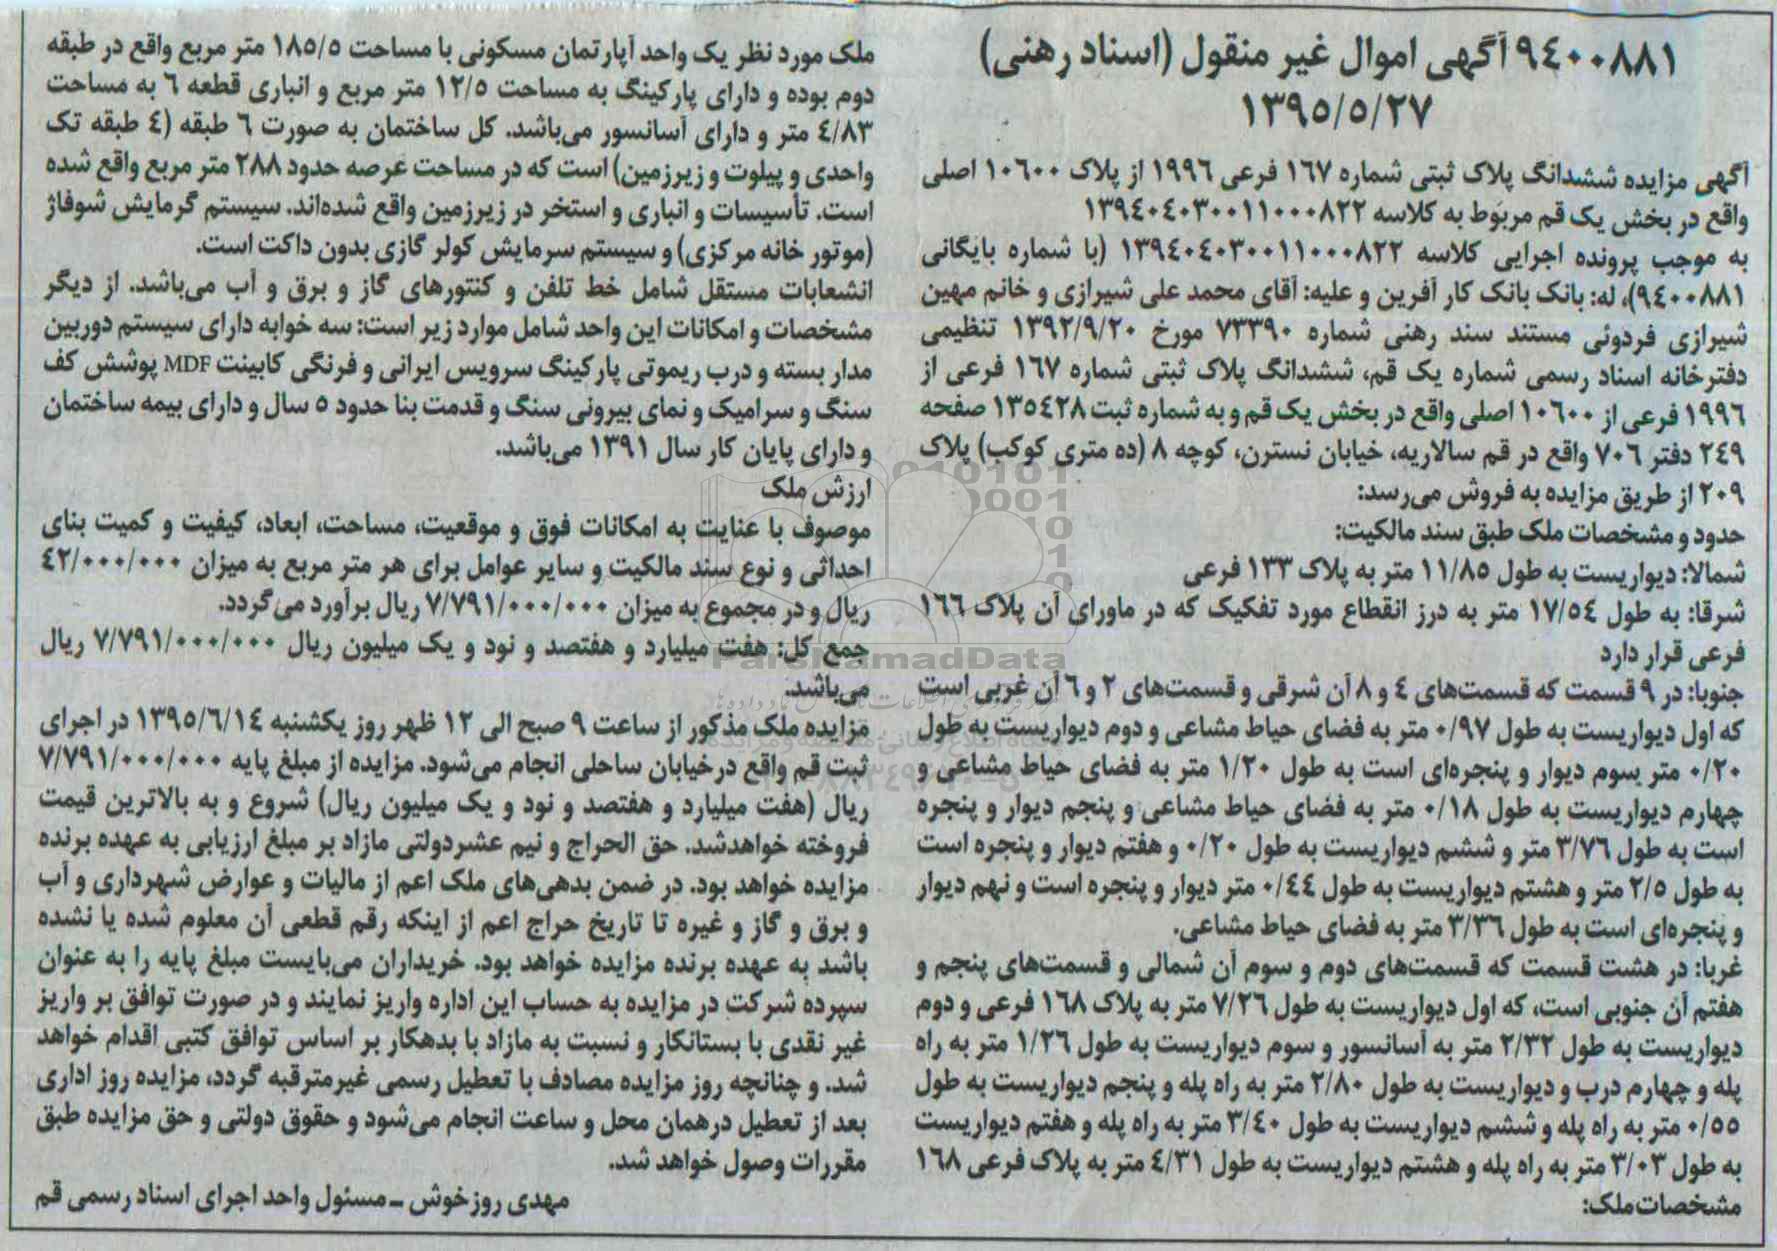 ۹۴۰۰۸۸۱ آگهی اموال غیر منقول (اسناد رهنی)
۱۳۹۵/۵/۲۷
آگهی مزایده ششدانگ پلاک ثبتی شماره ۱۶۷ فرعی ۱۹۹۶ از پلاک ۱۰۶۰۰ اصلی
واقع در بخش یک قم مربوط به کلاسه ۱۳۹۴۰۴۰۳۰۰۱۱۰۰۰۸۲۲
به موجب پرونده اجرایی کلاسه ۱۳۹۴۰۴۰۳۰۰۱۱۰۰۰۸۲۲ (با شماره بایگانی
۹۴۰۰۸۸۱)، له: بانک بانک کار آفرین و علیه: آقای محمد علی شیرازی و خانم مهین
شیرازی فردوئی مستند سند رهنی شماره ۷۳۳۹۰ مورخ ۱۳۹۲/۹/۲۰ تنظیمی
دفترخانه اسناد رسمی شماره یک قم، ششدانگ پلاک ثبتی شماره ۱۶۷ فرعی از
۱۹۹۶ فرعی از ۱۰۶۰۰ اصلی واقع در بخش یک قم و به شماره ثبت ۱۳۵۴۲۸ صفحه
۲۴۹ دفتر ۷۰۶ واقع در قم سالاریه، خیابان نسترن، کوچه ۸ (ده متری کوکب) پلاک
۲۰۹ از طریق مزایده به فروش می‌رسد:
حدود و مشخصات ملک طبق سند مالکیت:
شمالا: دیواریست به طول ۱۱/۸۵ متر به پلاک ۱۳۳ فرعی
شرقا: به طول ۱۷/۵۴ متر به درز انقطاع مورد تفکیک که در ماورای آن پلاک ۱۶۶
فرعی قرار دارد
جنوبا: در ۹ قسمت که قسمت‌های ۴ و ۸ آن شرقی و قسمت‌های ۲ و ۶ آن غربی است
که اول دیواریست به طول ۰/۹۷ متر به فضای حیاط مشاعی و دوم دیواریست به طول
۰/۲۰ متر سوم دیوار و پنجره‌ای است به طول ۱/۲۰ متر به فضای حیاط مشاعی و
چهارم دیواریست به طول ۰/۱۸ متر به فضای حیاط مشاعی و پنجم دیوار و پنجره
است به طول ۳/۷۶ متر و ششم دیواریست به طول ۰/۲۰ و هفتم دیوار و پنجره است
به طول ۲/۵ متر و هشتم دیواریست به طول ۰/۴۴ متر دیوار و پنجره است و نهم دیوار
و پنجره‌ای است به طول ۳/۳۶ متر به فضای حیاط مشاعی.
غربا: در هشت قسمت که قسمت‌های دوم و سوم آن شمالی و قسمت‌های پنجم و
هفتم آن جنوبی است، که اول دیواریست به طول ۷/۲۶ متر به پلاک ۱۶۸ فرعی و دوم
دیواریست به طول ۲/۳۲ متر به آسانسور و سوم دیواریست به طول ۱/۲۶ متر به راه
پله و چهارم درب و دیواریست به طول ۲/۸۰ متر به راه پله و پنجم دیواریست به طول
۰/۵۵ متر به راه پله و ششم دیواریست به طول ۳/۴۰ متر به راه پله و هفتم دیواریست
به طول ۳/۰۳ متر به راه پله و هشتم دیواریست به طول ۴/۳۱ متر به پلاک فرعی ۱۶۸
مشخصات ملک:
ملک مورد نظر یک واحد آپارتمان مسکونی با مساحت ۱۸۵/۵ متر مربع واقع در طبقه
دوم بوده و دارای پارکینگ به مساحت ۱۲/۵ متر مربع و انباری قطعه ۶ به مساحت
۴/۸۳ متر و دارای آسانسور می‌باشد. کل ساختمان به صورت ۶ طبقه (۴ طبقه تک
واحدی و پیلوت و زیرزمین) است که در مساحت عرصه حدود ۲۸۸ متر مربع واقع شده
است. تأسیسات و انباری و استخر در زیرزمین واقع شده‌اند. سیستم گرمایش شوفاژ
(موتور خانه مرکزی) و سیستم سرمایش کولر گازی بدون داکت است.
انشعابات مستقل شامل خط تلفن و کنتورهای گاز و برق و آب می‌باشد. از دیگر
مشخصات و امکانات این واحد شامل موارد زیر است: سه خوابه دارای سیستم دوربین
مدار بسته و درب ریموتی پارکینگ سرویس ایرانی و فرنگی کابینت MDF پوشش کف
سنگ و سرامیک و نمای بیرونی سنگ و قدمت بنا حدود ۵ سال و دارای بیمه ساختمان
و دارای پایان کار سال ۱۳۹۱ می‌باشد.
ارزش ملک
موصوف با عنایت به امکانات فوق و موقعیت، مساحت، ابعاد، کیفیت و کمیت بنای
احداثی و نوع سند مالکیت و سایر عوامل برای هر متر مربع به میزان ۴۲/۰۰۰/۰۰۰
ریال و در مجموع به میزان ۷/۷۹۱/۰۰۰/۰۰۰ ریال برآورد می‌گردد.
جمع کل: هفت میلیارد و هفتصد و نود و یک میلیون ریال ۷/۷۹۱/۰۰۰/۰۰۰ ریال
می‌باشد.
مزایده ملک مذکور از ساعت ۹ صبح الی ۱۲ ظهر روز یکشنبه ۱۳۹۵/۶/۱۴ در اجرای
ثبت قم واقع در خیابان ساحلی انجام می‌شود. مزایده از مبلغ پایه ۷/۷۹۱/۰۰۰/۰۰۰
ریال (هفت میلیارد و هفتصد و نود و یک میلیون ریال) شروع و به بالاترین قیمت
فروخته خواهدشد. حق الحراج و نیم عشردولتی مازاد بر مبلغ ارزیابی به عهده برنده
مزایده خواهد بود. در ضمن بدهی‌های ملک اعم از مالیات و عوارض شهرداری و آب
و برق و گاز و غیره تا تاریخ حراج اعم از اینکه رقم قطعی آن معلوم شده یا نشده
باشد به عهده برنده مزایده خواهد بود. خریداران می‌بایست مبلغ پایه را به عنوان
سپرده شرکت در مزایده به حساب این اداره واریز نمایند و در صورت توافق بر واریز
غیر نقدی با بستانکار و نسبت به مازاد با بدهکار بر اساس توافق کتبی اقدام خواهد
شد. و چنانچه روز مزایده مصادف با تعطیل رسمی غیرمترقبه گردد، مزایده روز اداری
بعد از تعطیل درهمان محل و ساعت انجام می‌شود و حقوق دولتی و حق مزایده طبق
مقررات وصول خواهد شد.
مهدی روزخوش ـ مسئول واحد اجرای اسناد رسمی قم
ParsNamadData